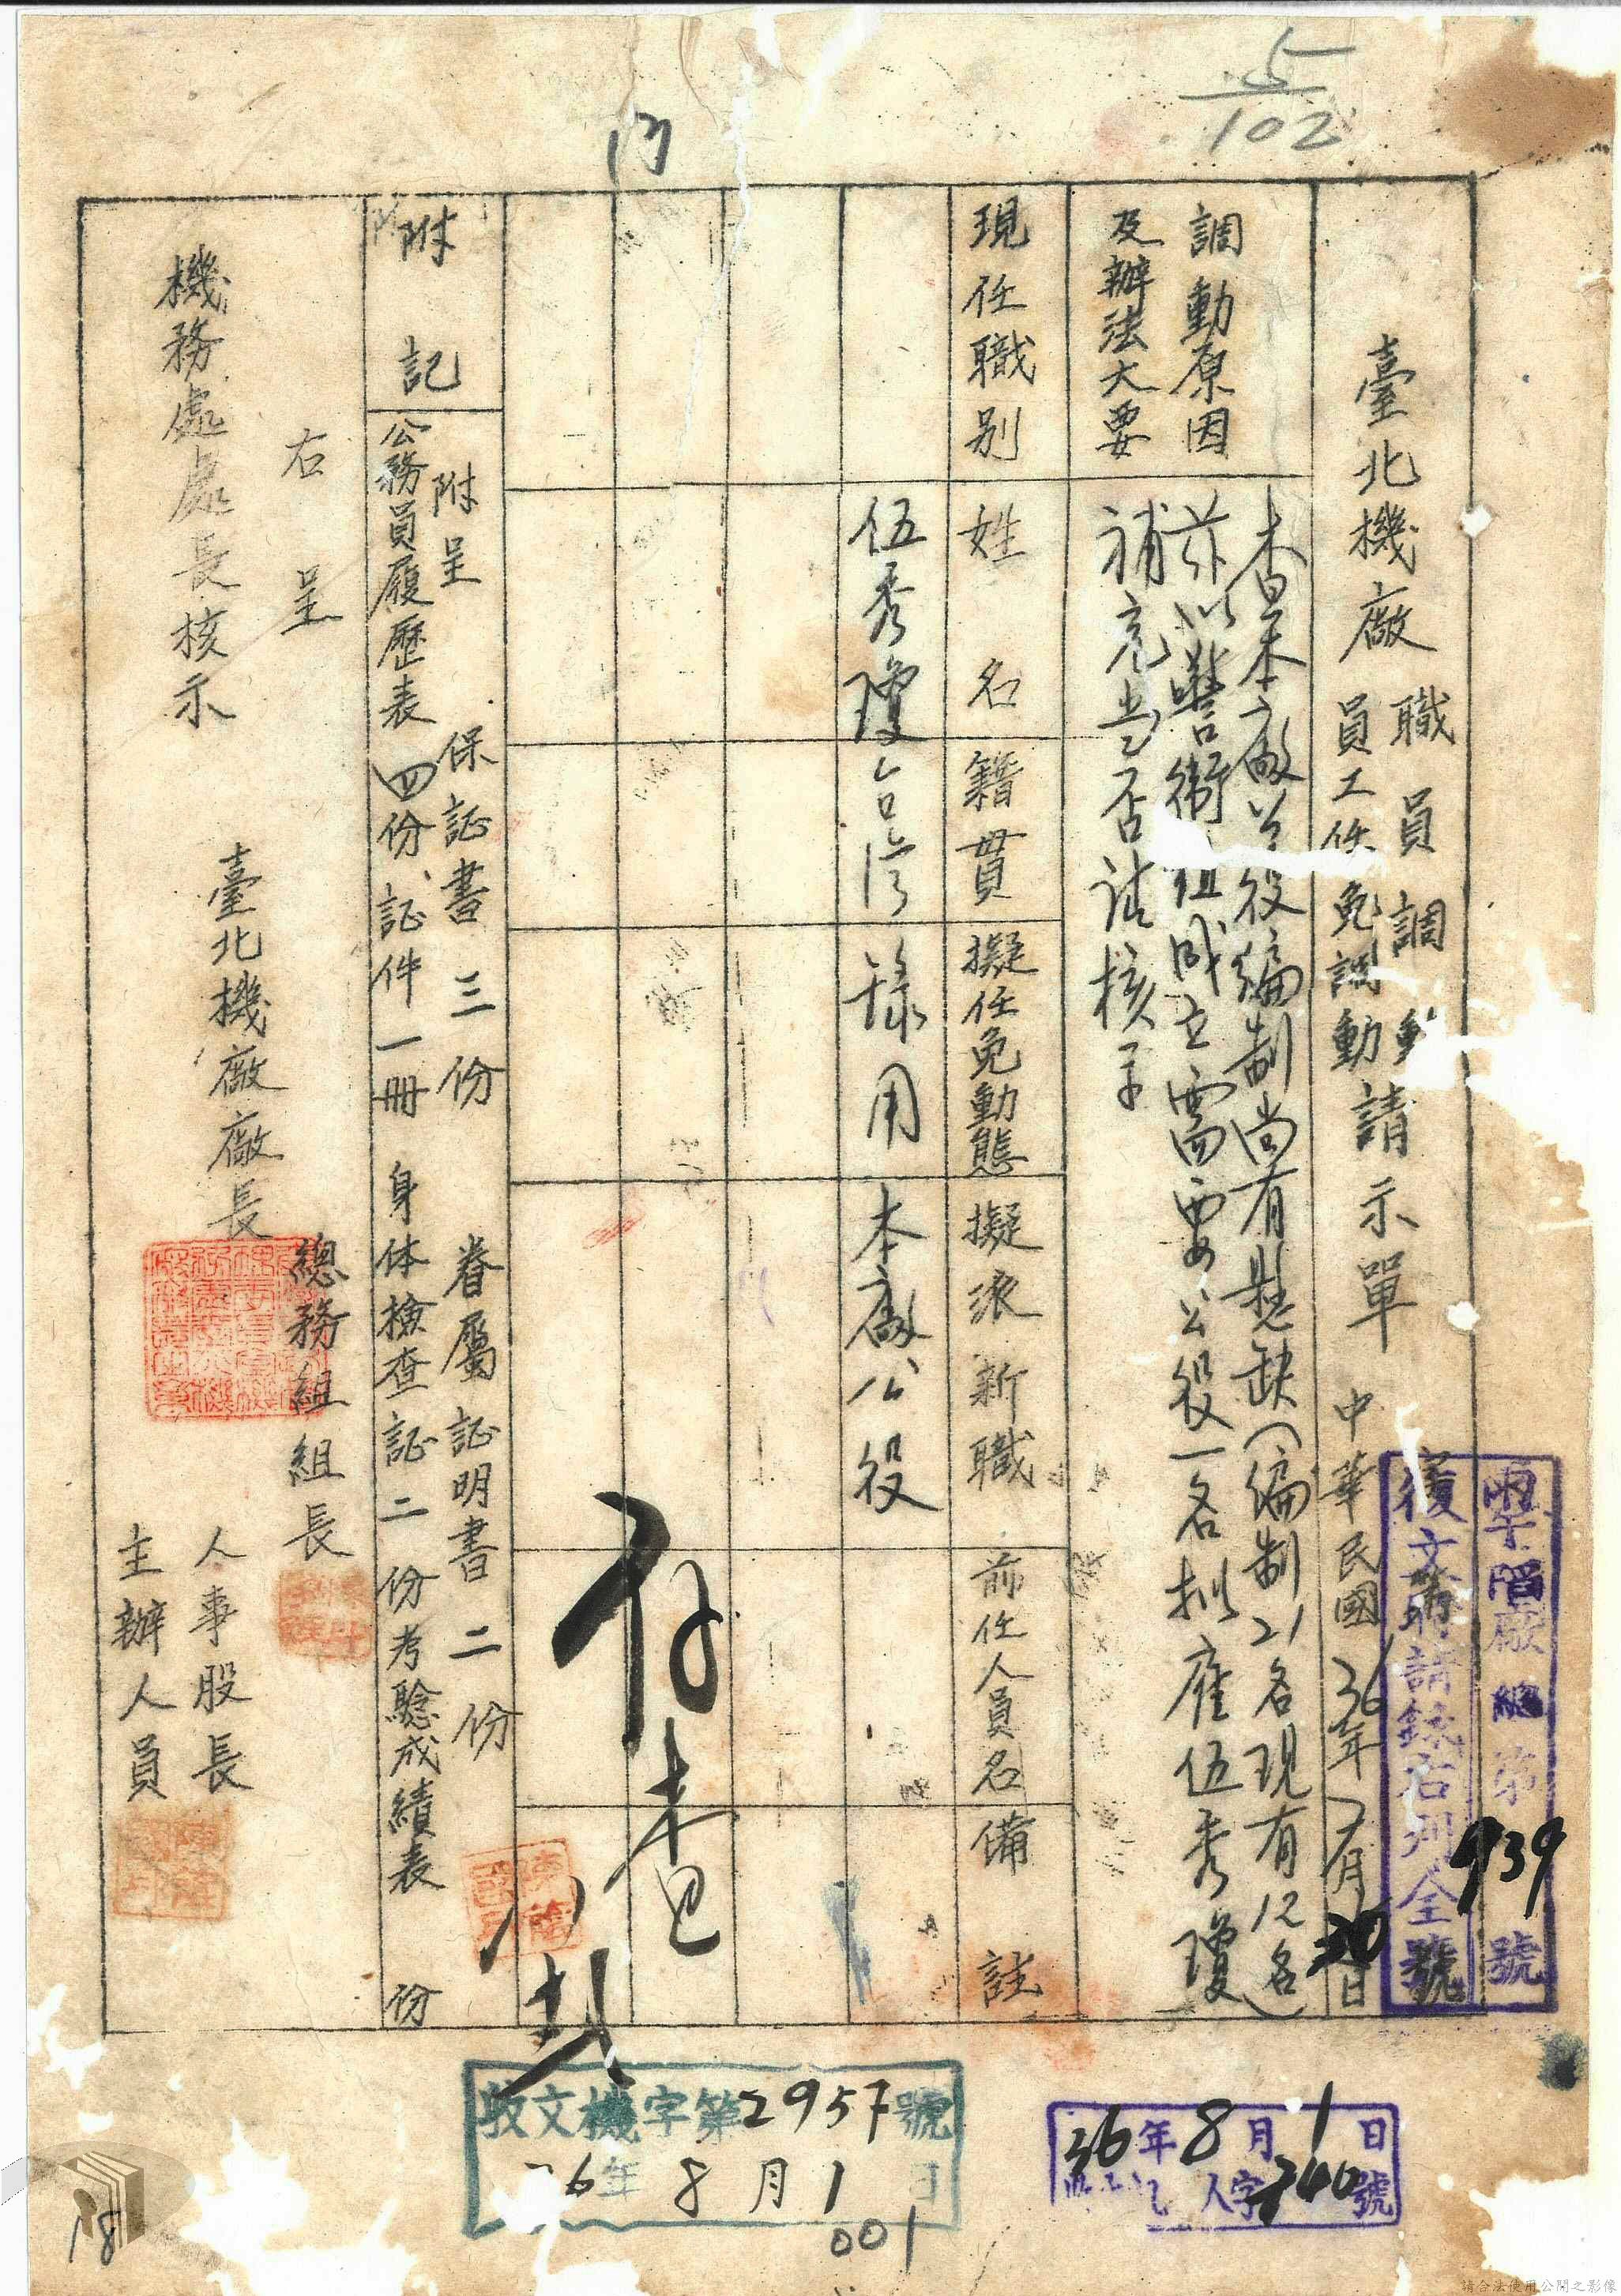 5
102
臺北機廠
職員調動
員工任免調動
請示單
中華民國36年7月30日
覆文時請錄右列全號
廠總第939號
調動原因
及辦法大要
查本廠公役編制尚有懸缺(編制21名現有12名)
茲以警衛組成立需要公役一名拟雇伍秀瓊
補充当否請核示
現任職別
姓名
籍貫
擬任免動態
擬派新職
前任人員名
備註
伍秀瓊
台湾
錄用
本廠公役
附記
附呈
保証書三份
眷屬証明書二份
公務員履歷表四份、証件一冊
身体檢查証二份
考驗成績表 份
右呈
機務處處長核示
臺北機廠廠長
總務組組長
人事股長
主辦人員
收文機字第2957號
36年8月1日
001
36年8月1日
人字340號
18
請合法使用公開之影像